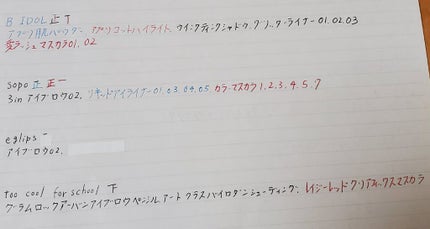 B IDOL 正丅
アプリ肌パウダー、アプリコットハイライト、ツインクティンクシャドウ、グリッターライナー01.02.03
変ラーシュマスカラ01.02
sopo 正正一
3inアイブロウ02、リキッドアイライナー01.03.04.05 カラーマスカラ1.2.3.4.5.7
eglips 一
アイブロウ02、
too cool for school 下
グラムロックアーバンアイブロウペンシル、アートクラスバイロダンシェーディング、レイジーレッドクリアフィックスマスカラ